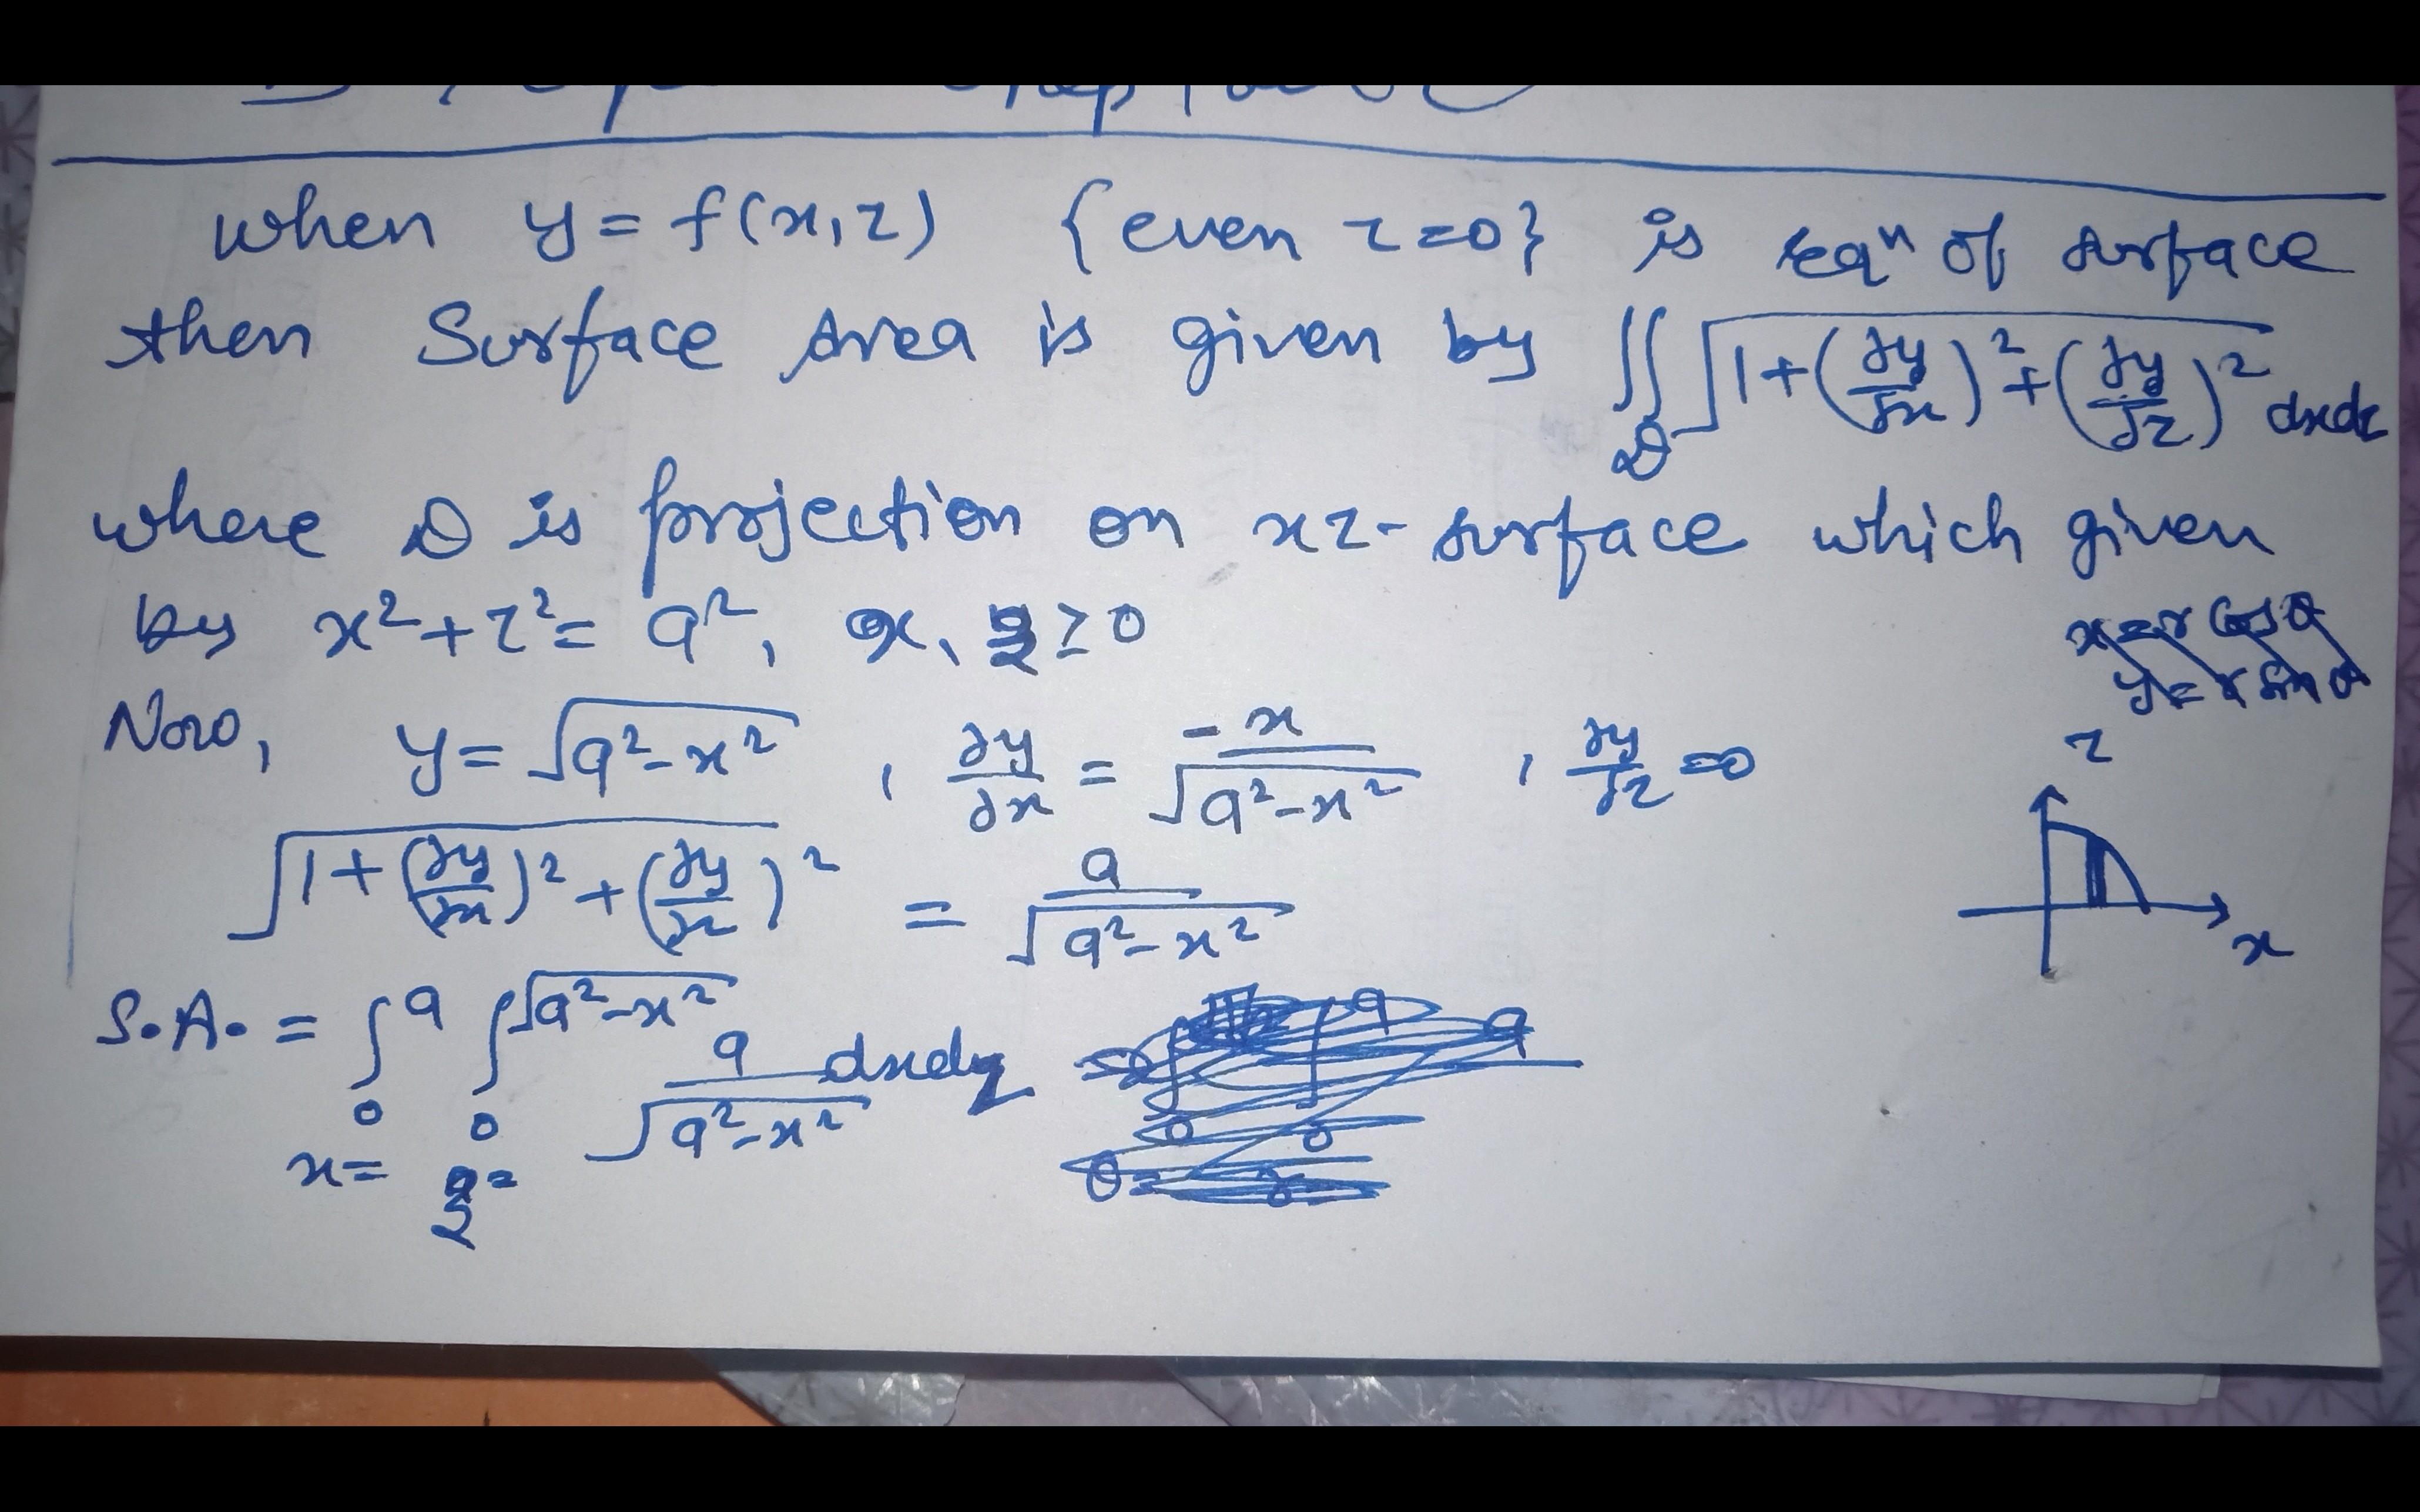 when y = f(x,z) {even z=0} is eqⁿ of surface
then Surface Area is given by ∬_D √(1+(∂y/∂x)²+(∂y/∂z)²) dxdz
where D is projection on xz- surface which given
by x²+z² = a², x, z ≥ 0
x = r cos θ
y = r sin θ
Now, y = √(a²-x²) , ∂y/∂x = -x/√(a²-x²) , ∂y/∂z = 0
z
√(1+(∂y/∂x)²+(∂y/∂z)²) = a/√(a²-x²)
x
S.A. = ∫₀^a ∫₀^√(a²-x²) a/√(a²-x²) dxdz
x= z=